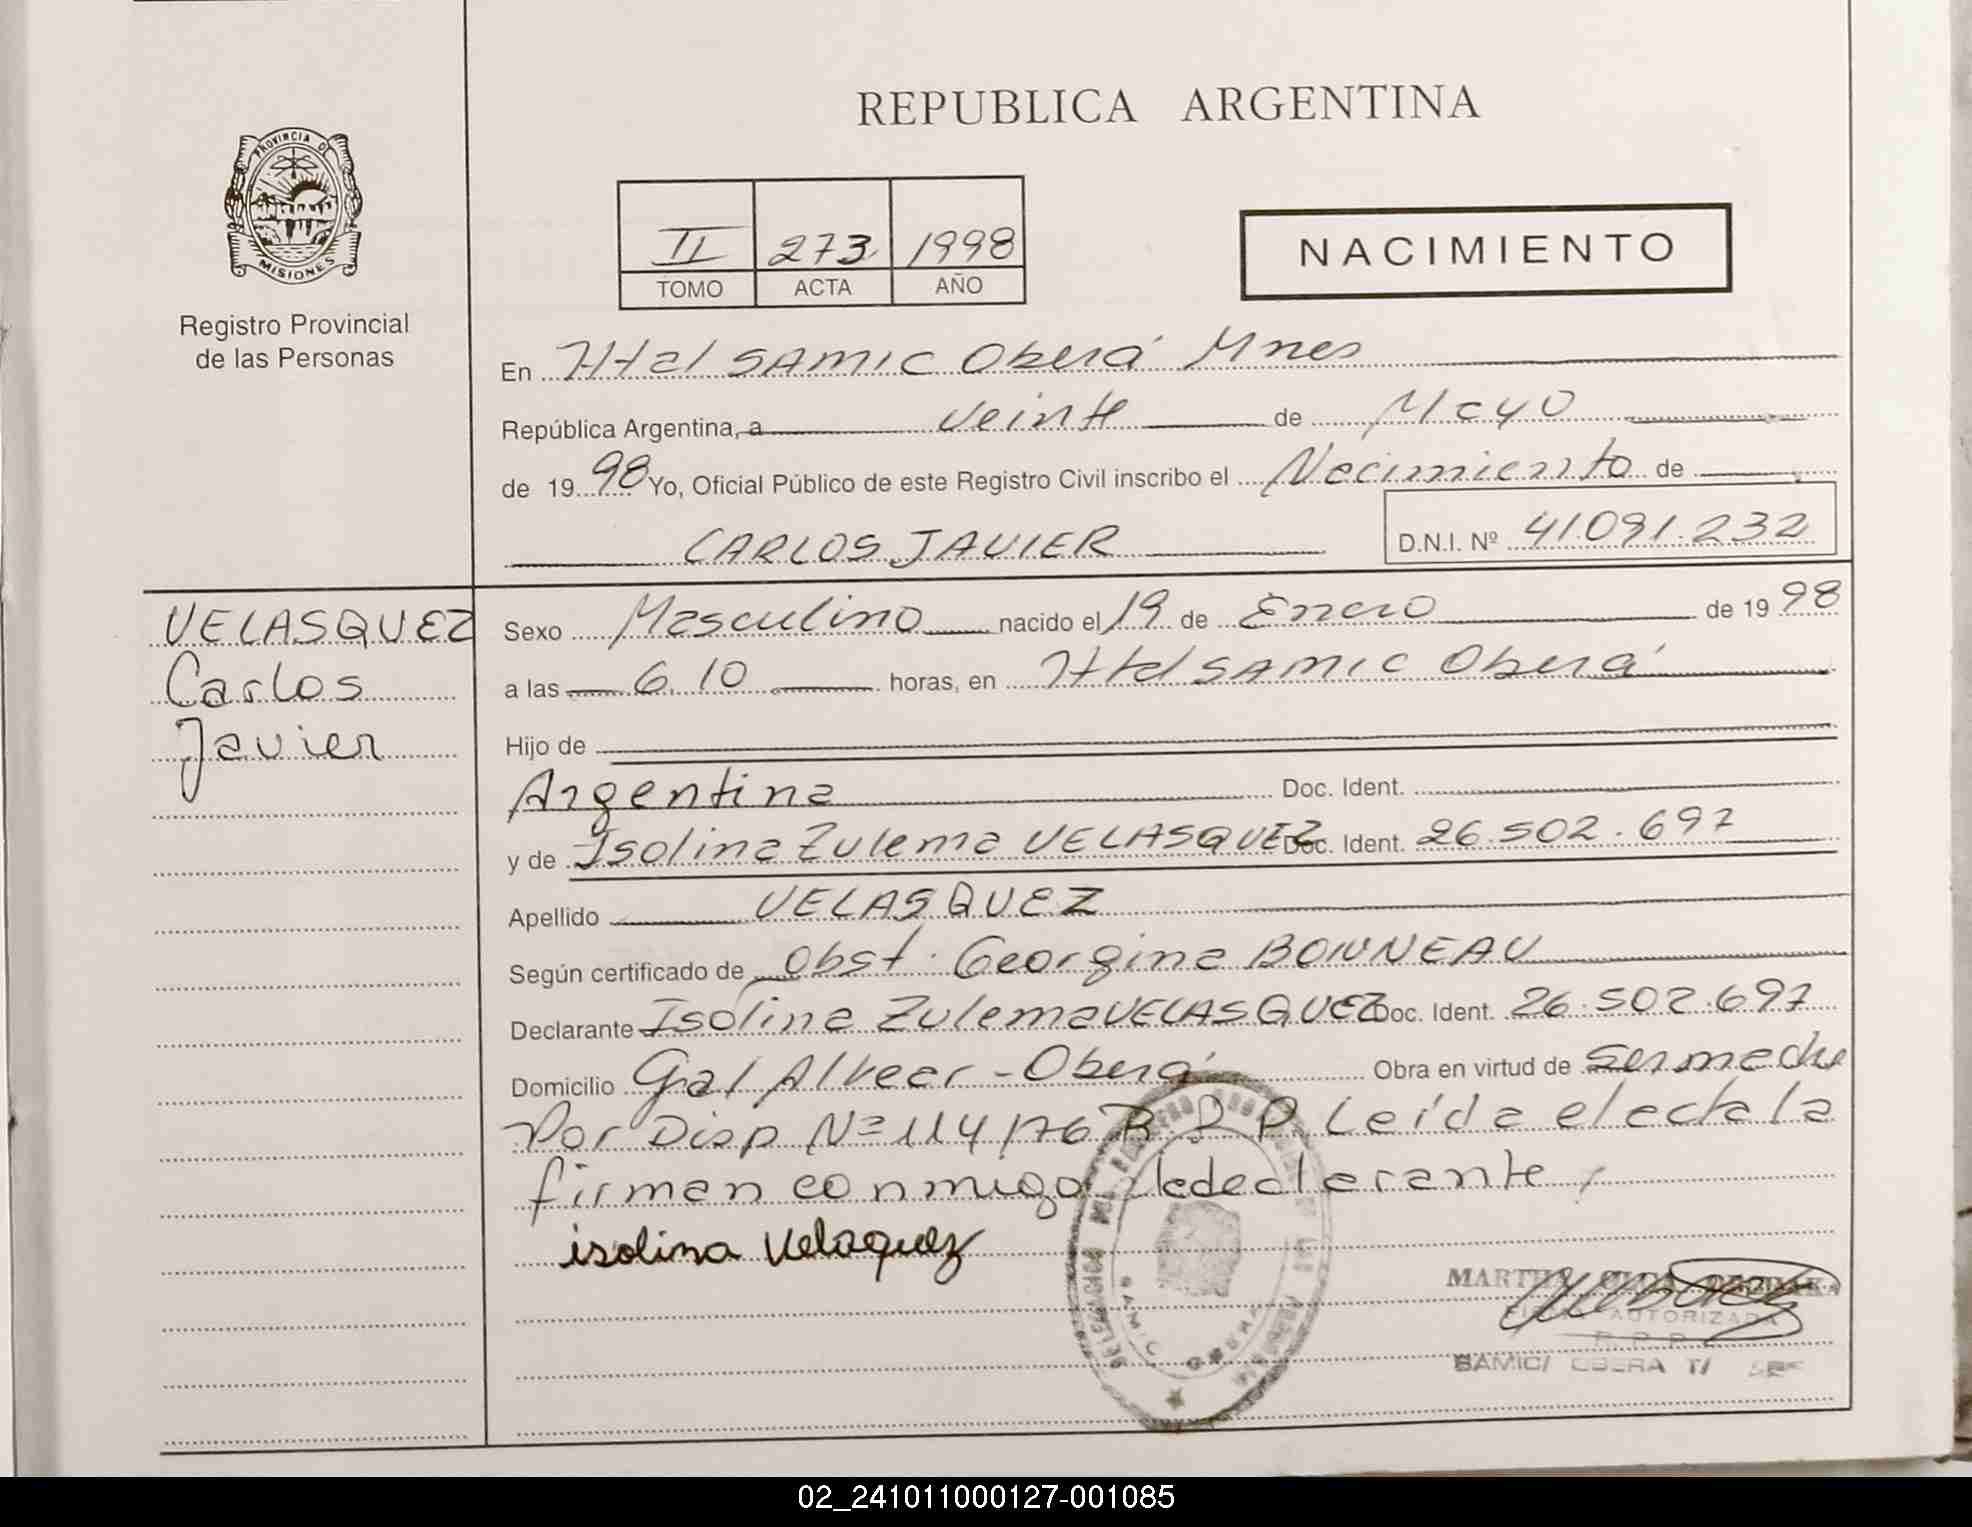 REPUBLICA ARGENTINA
PROVINCIA DE
MISIONES
Registro Provincial
de las Personas
II 273 1998
TOMO ACTA AÑO
NACIMIENTO
En Htal SAMIC Oberá Mnes
República Argentina, a veinte de Mayo
de 1998 Yo, Oficial Público de este Registro Civil inscribo el Nacimiento de
CARLOS JAVIER D.N.I. Nº 41.091.232
VELASQUEZ
Carlos
Javier
Sexo Masculino nacido el 19 de Enero de 1998
a las 6.10 horas, en Htal SAMIC Oberá
Hijo de
Argentina Doc. Ident.
y de Isolina Zulema VELASQUEZ Doc. Ident. 26.502.697
Apellido VELASQUEZ
Según certificado de Obst. Georgina BONNEAU
Declarante Isolina Zulema VELASQUEZ Doc. Ident. 26.502.697
Domicilio Gral Alvear - Oberá Obra en virtud de ser madre
Por Disp Nº 114/76 R.P.P. Leída el acta la
firman conmigo la declarante
isolina Velaquez
MARTHA
FIRMA AUTORIZADA
R.P.P.
SAMIC/ OBERA T/
02_241011000127-001085